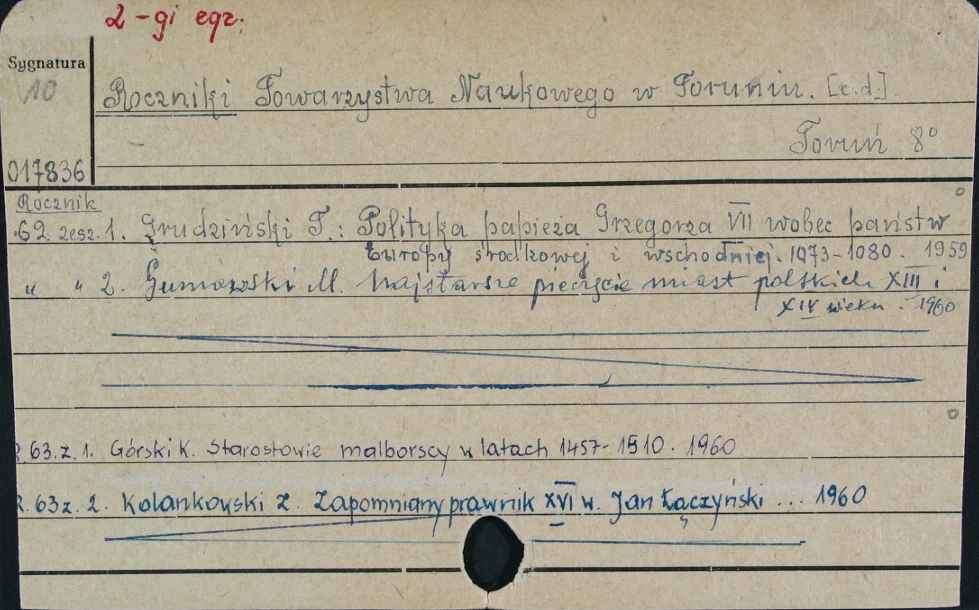 2-gi egz.
Sygnatura
10
Roczniki Towarzystwa Naukowego w Toruniu. [c.d.]
Toruń 8°
017836
Rocznik
62 zesz. 1. Grudziński T.: Polityka papieża Grzegorza VII wobec państw
Europy środkowej i wschodniej. 1073-1080. 1959
" " 2. Gumowski M. Najstarsze pieczęcie miast polskich XIII i
XIV wieku. 1960
R. 63. z. 1. Górski K. Starostowie malborscy w latach 1457-1510. 1960
R. 63 z. 2. Kolankowski Z. Zapomniany prawnik XVI w. Jan Łączyński ... 1960